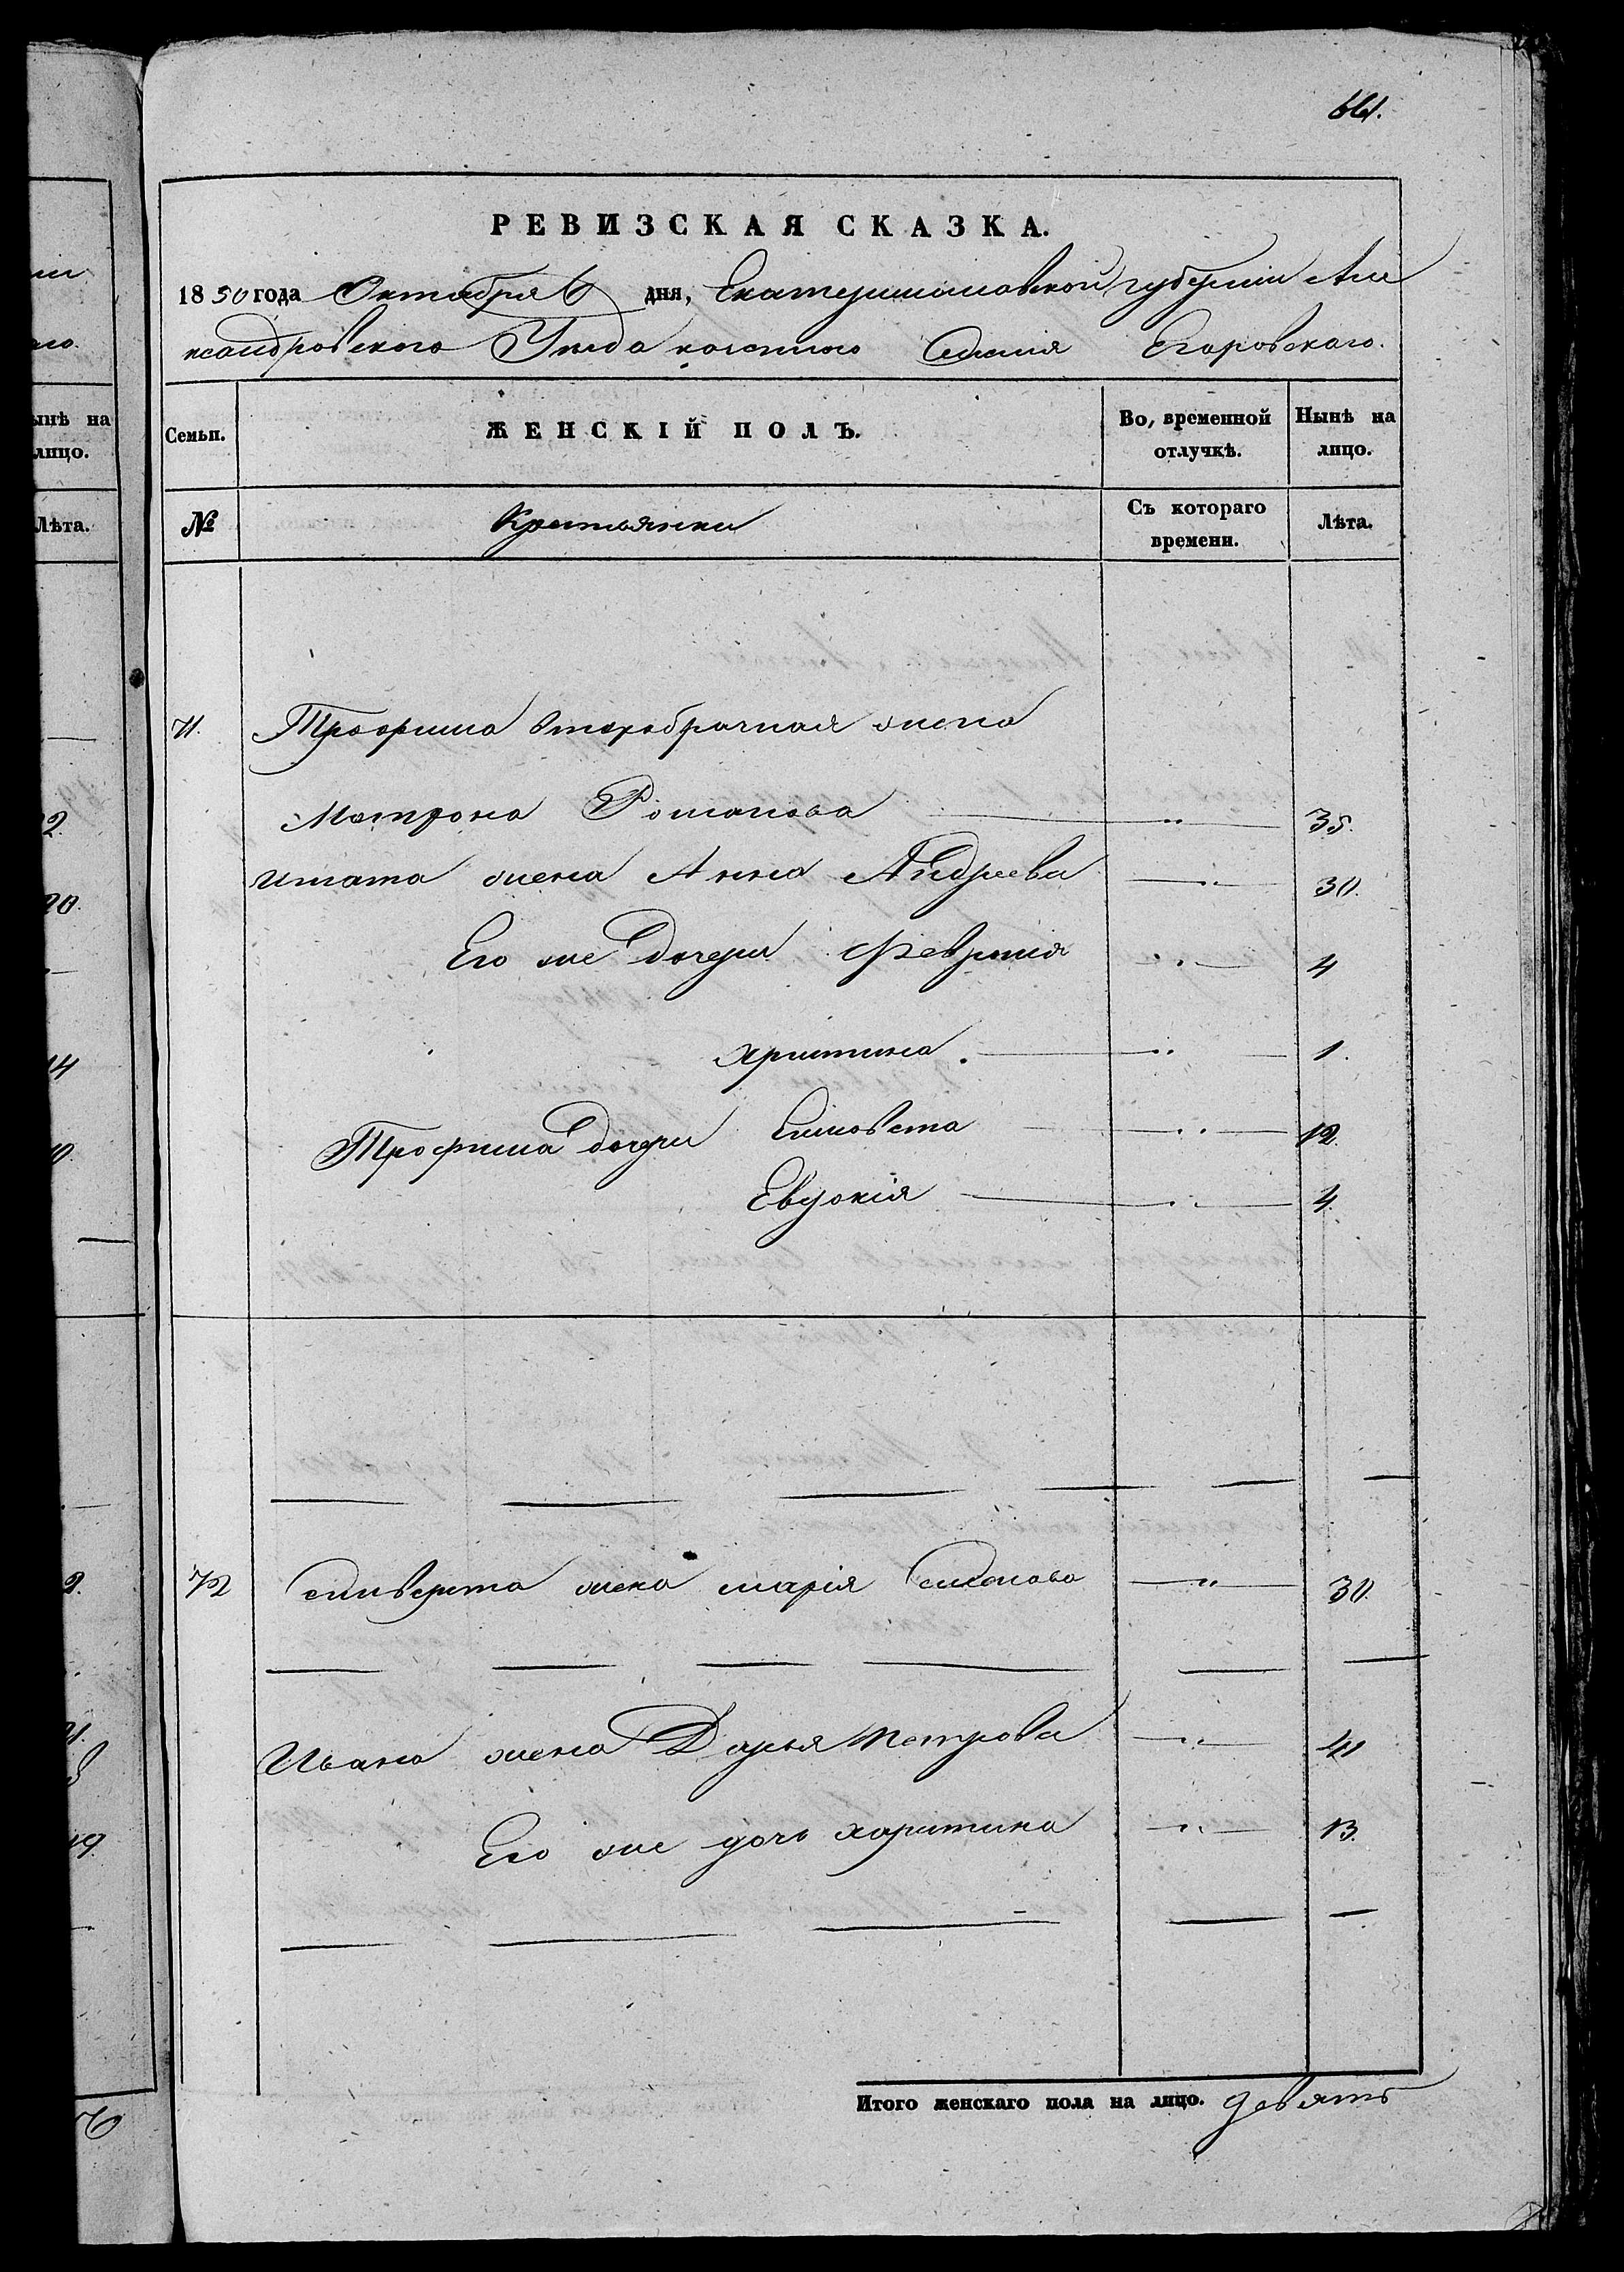 661.
РЕВИЗСКАЯ СКАЗКА.
1850 года Октября 6 дня, Екатеринославской губернии Але
ксандровского Уезда казенного Селения Егоровскаго.
Семьи. ЖЕНСКІЙ ПОЛЪ. Во, временной отлучкѣ. Нынѣ на лицо.
№ Крестьянки Съ котораго времени. Лѣта.
71. Трофима второбрачная жена
Матрона Романова — „ — 35.
Игната жена Анна Андреева — „ — 30.
Его же дочери Февронія — „ — 4
христина. — „ — 1.
Трофима дочери Елисавета — „ — 12.
Евдокія — „ — 4.
72 Силиверста жена марія Семенова — „ — 30.
Ивана жена Дарья Петрова — „ — 41
Его же дочь харитина — „ — 13.
Итого женскаго пола на лицо. девять
ынѣ на
лицо.
Лѣта.